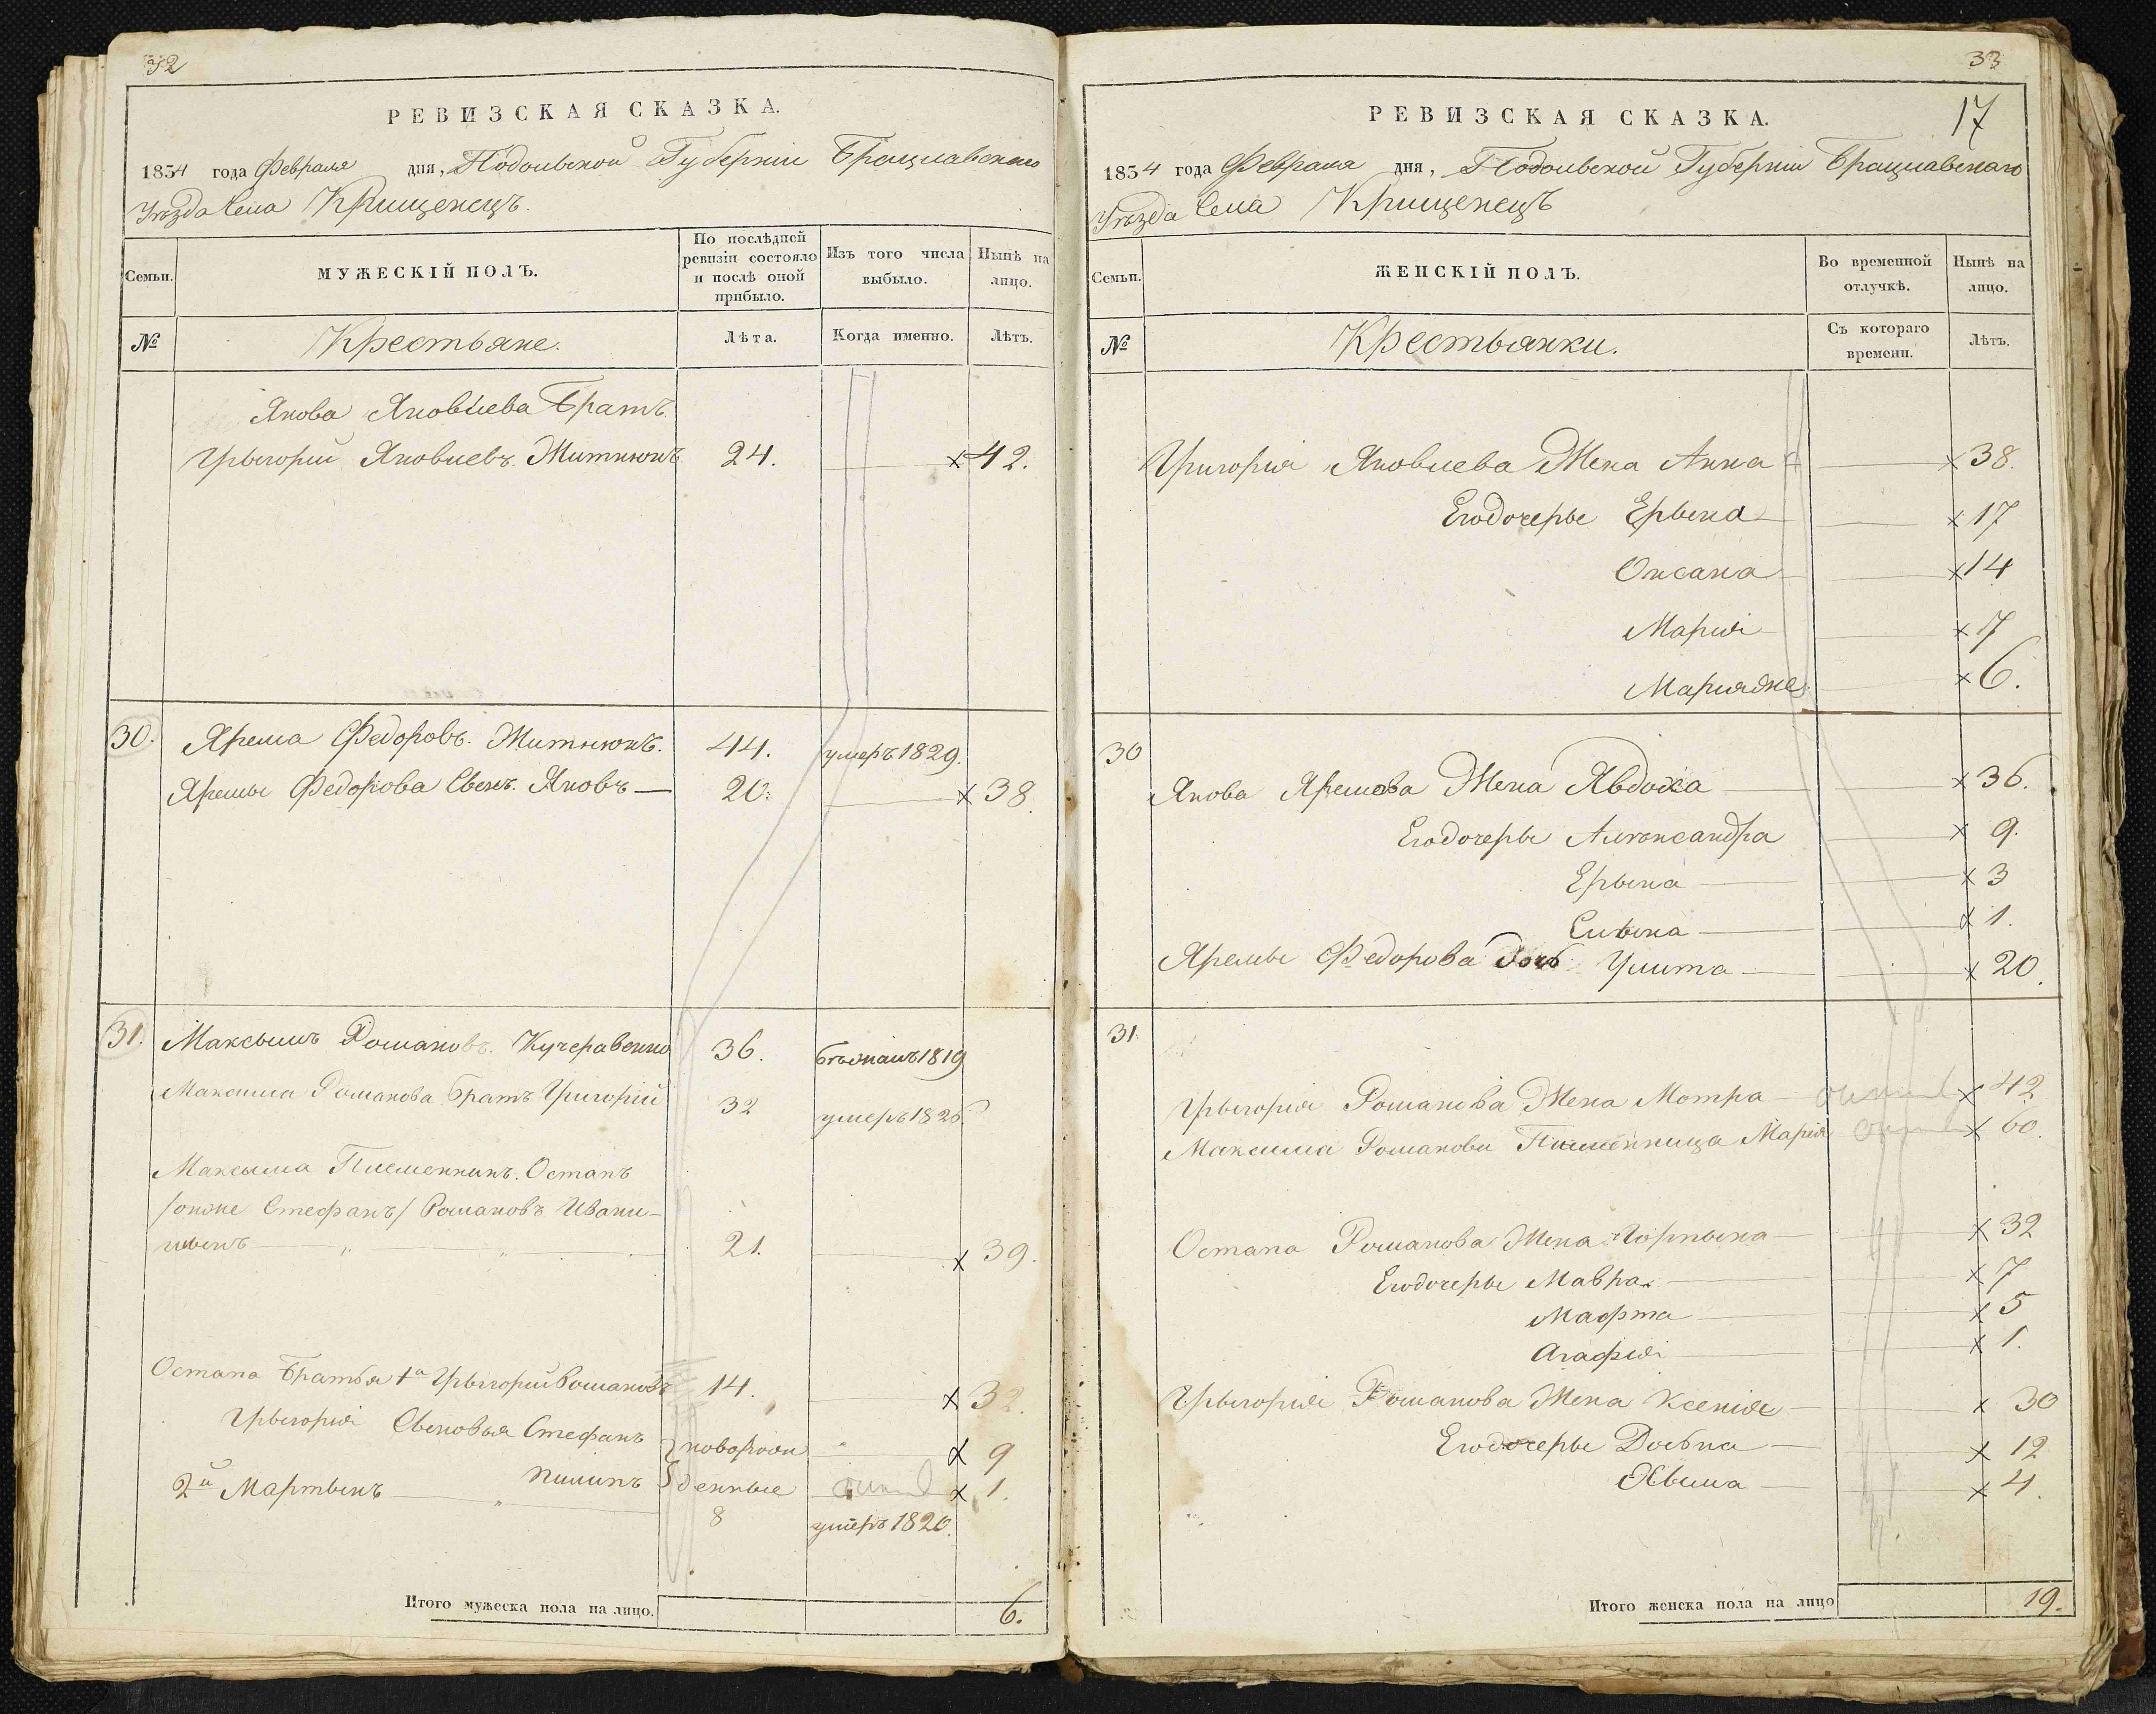 32
РЕВИЗСКАЯ СКАЗКА.
1834 года Февраля дня, Подольской Губерніи Брацлавскаго
Уѣзда Села Крищенецъ.
Семьи.
МУЖЕСКІЙ ПОЛЪ.
По послѣдней ревизіи состояло и послѣ оной прибыло.
Изъ того числа выбыло.
Нынѣ на лицо.
№
Крестьяне.
Лѣта.
Когда именно.
Лѣтъ.
Якова Яковлева Братъ
Грыгорій Яковлевъ Житнюкъ 24. х 42.
30. Ярема Федоровъ Житнюкъ. 44. умеръ 1829.
Яремы Федорова Сынъ Яковъ 20. х 38
31. Максымъ Романовъ Кучеравенко 36. бѣжалъ 1819
Максима Романова Братъ Григорій 32 умеръ 1826.
Максыма Племенникъ Остапъ
/онже Стефанъ/ Романовъ Ивани-
шынъ 21. х 39.
Остапа Братья 1й Грыгорій Романовъ 14. х 32.
Грыгорія Сыновья Стефанъ новорож х 9
Пилипъ денные х 1.
2й Мартынъ 8 умеръ 1820.
Итого мужеска пола на лицо. 6.
33
17
РЕВИЗСКАЯ СКАЗКА.
1834 года Февраля дня, Подольской Губерніи Брацлавскаго
Уѣзда Села Крищенецъ
Семьи.
ЖЕНСКІЙ ПОЛЪ.
Во временной отлучкѣ.
Нынѣ на лицо.
№
Крестьянки.
Съ котораго времени.
Лѣтъ.
Григорія Яковлева Жена Анна х 38.
Егодочеры Ерына х 17
Оксана х 14
Марія х 7
Маріяна х 6.
30
Якова Яремова Жена Явдоха х 36.
Егодочеры Алѣксандра х 9.
Ерына х 3
Елына х 1.
Яремы Федорова дочь Улита х 20.
31.
Грыгорія Романова Жена Мотра х 42
Максима Романова Племенница Марія х 60.
Остапа Романова Жена Горпына х 32
Егодочеры Мавра х 7
Мафта х 5
Агафія х 1.
Грыгорія Романова Жена Ксенія х 30
Егодочеры Досьпа х 12
Хвыма х 4.
Итого женска пола на лицо 19.